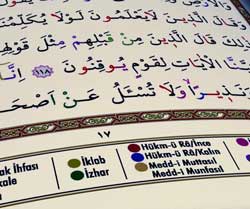 قَالَ الَّذ۪ينَ لَا يَعْلَمُونَ لَوْلَا
قَالَ الَّذ۪ينَ مِنْ قَبْلِهِمْ مِثْلَ
بَيَّنَّا الْاٰيَاتِ لِقَوْمٍ يُوقِنُونَ ﴿١١٨﴾ اِنَّٓا
وَنَذ۪يرًاۙ وَلَا تُسْـَٔلُ عَنْ
١٧
İhfası İklab Hükm-ü Râ/İnce
İzhar Hükm-ü Râ/Kalın
Medd-i Muttasıl
Medd-i Munfasıl